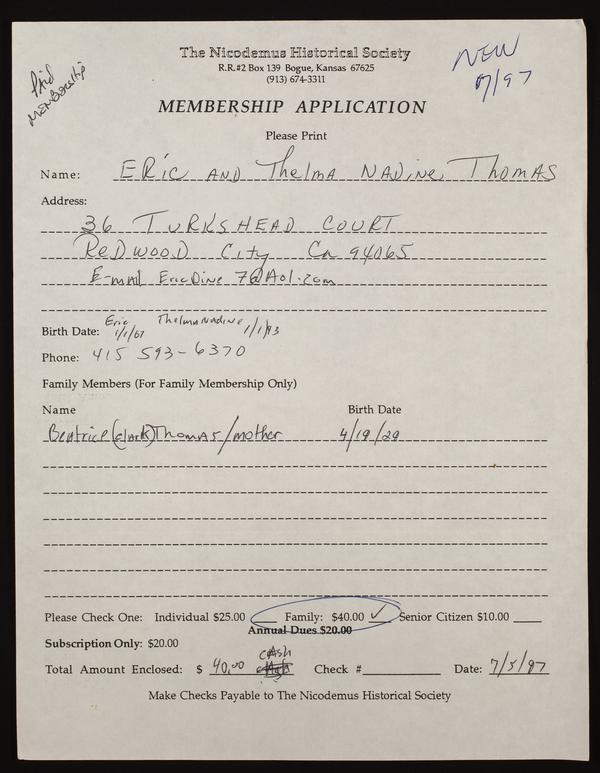 Paid
Membership
The Nicodemus Historical Society
R.R.#2 Box 139 Bogue, Kansas 67625
(913) 674-3311
NEW
7/97
MEMBERSHIP APPLICATION
Please Print
Name: ERic AND Thelma NADiNe THOMAS
Address:
36 TURKSHEAD COURT
ReDWOOD City Ca 94065
E-mail EricDiNe 7@Aol.com
Birth Date: Eric 1/1/67 ThelmaNadine 1/1/93
Phone: 415 593-6370
Family Members (For Family Membership Only)
Name Birth Date
Beatrice (Clark) Thomas/mother 4/19/29
Please Check One: Individual $25.00 ___ Family: $40.00 ✓ Senior Citizen $10.00 ___
Annual Dues $20.00
Subscription Only: $20.00
Total Amount Enclosed: $ 40.00 cAsh Check #__________ Date: 7/5/97
Make Checks Payable to The Nicodemus Historical Society